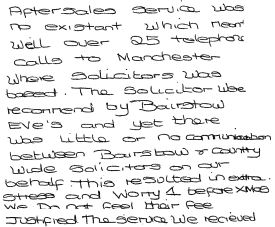 Aftersales service was
no existant which mean
well over 25 telephone
calls to Manchester
where solicitors was
based. The solicitor we
recommend by Bairstow
EVe's and yet there
was little or no communication
between Bairstow & country
wide solicitors on our
behalf this resulted in extra
stress and worry & before XMAS
We Do not feel their fee
Justfired The service we recieved